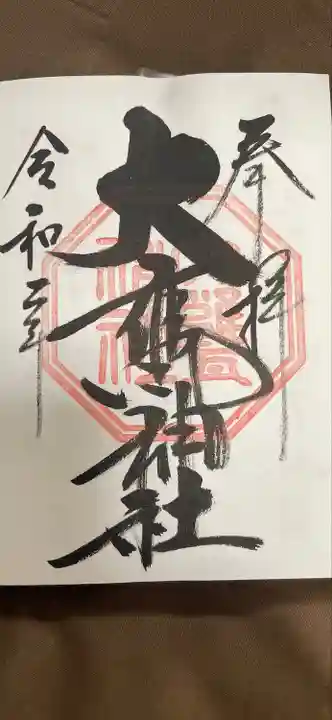 奉拝
大甕神社
令和二年